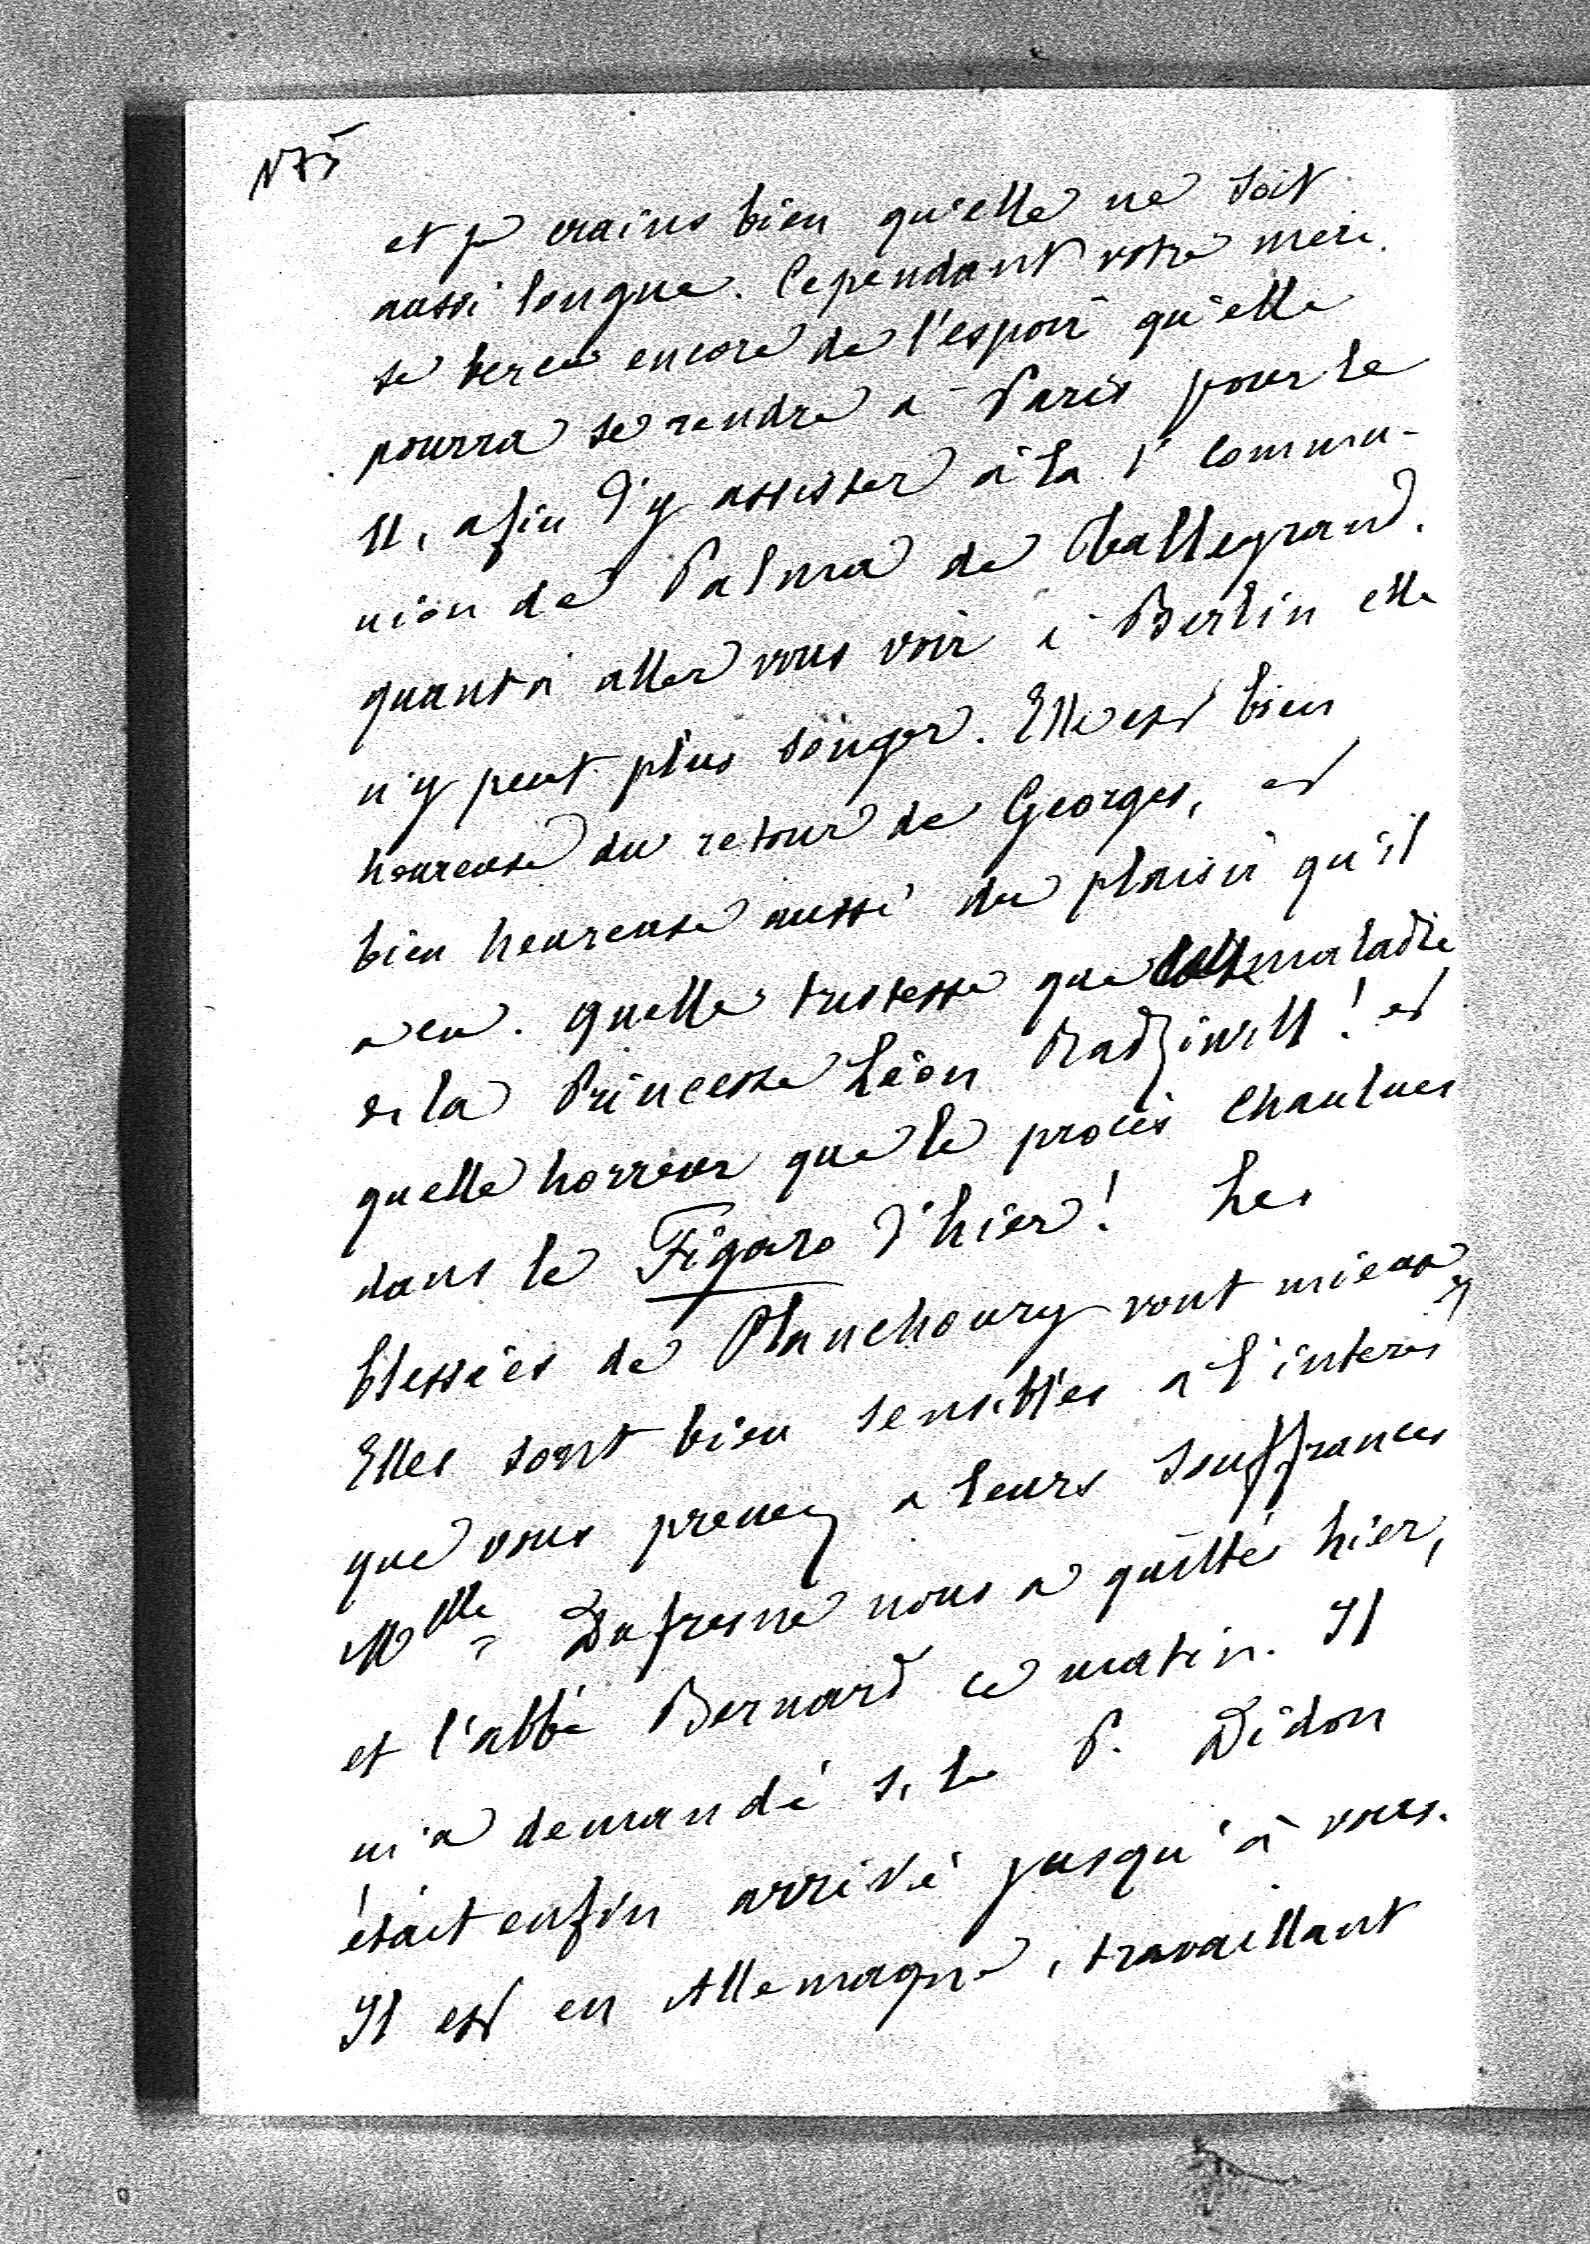 175
et je crains bien qu'elle ne soit
aussi longue. Cependant votre mère
se berce encore de l'espoir qu'elle
pourra se rendre à Paris pour le
11, afin d'y assister à la 1e commu-
nion de Palma de Talleyrand.
quant à aller vous voir à Berlin elle
n'y peut plus songer. Elle est bien
heureuse du retour de Georges, et
bien heureuse aussi du plaisir qu'il
a eu. quelle tristesse que cette maladie
de la Princesse Léon Radziwill! et
quelle horreur que le procès Chaulnes
dans le Figaro d'hier! Les
blessées de Planchoury vont mieux
Elles sont bien sensibles à l'intérêt
que vous prenez a leurs souffrances
Mlle Dufresne nous a quittés hier,
et l'abbé Bernard ce matin. Il
m'a demandé si le P. Didon
était enfin arrivé jusqu'à vous.
Il est en Allemagne, travaillant